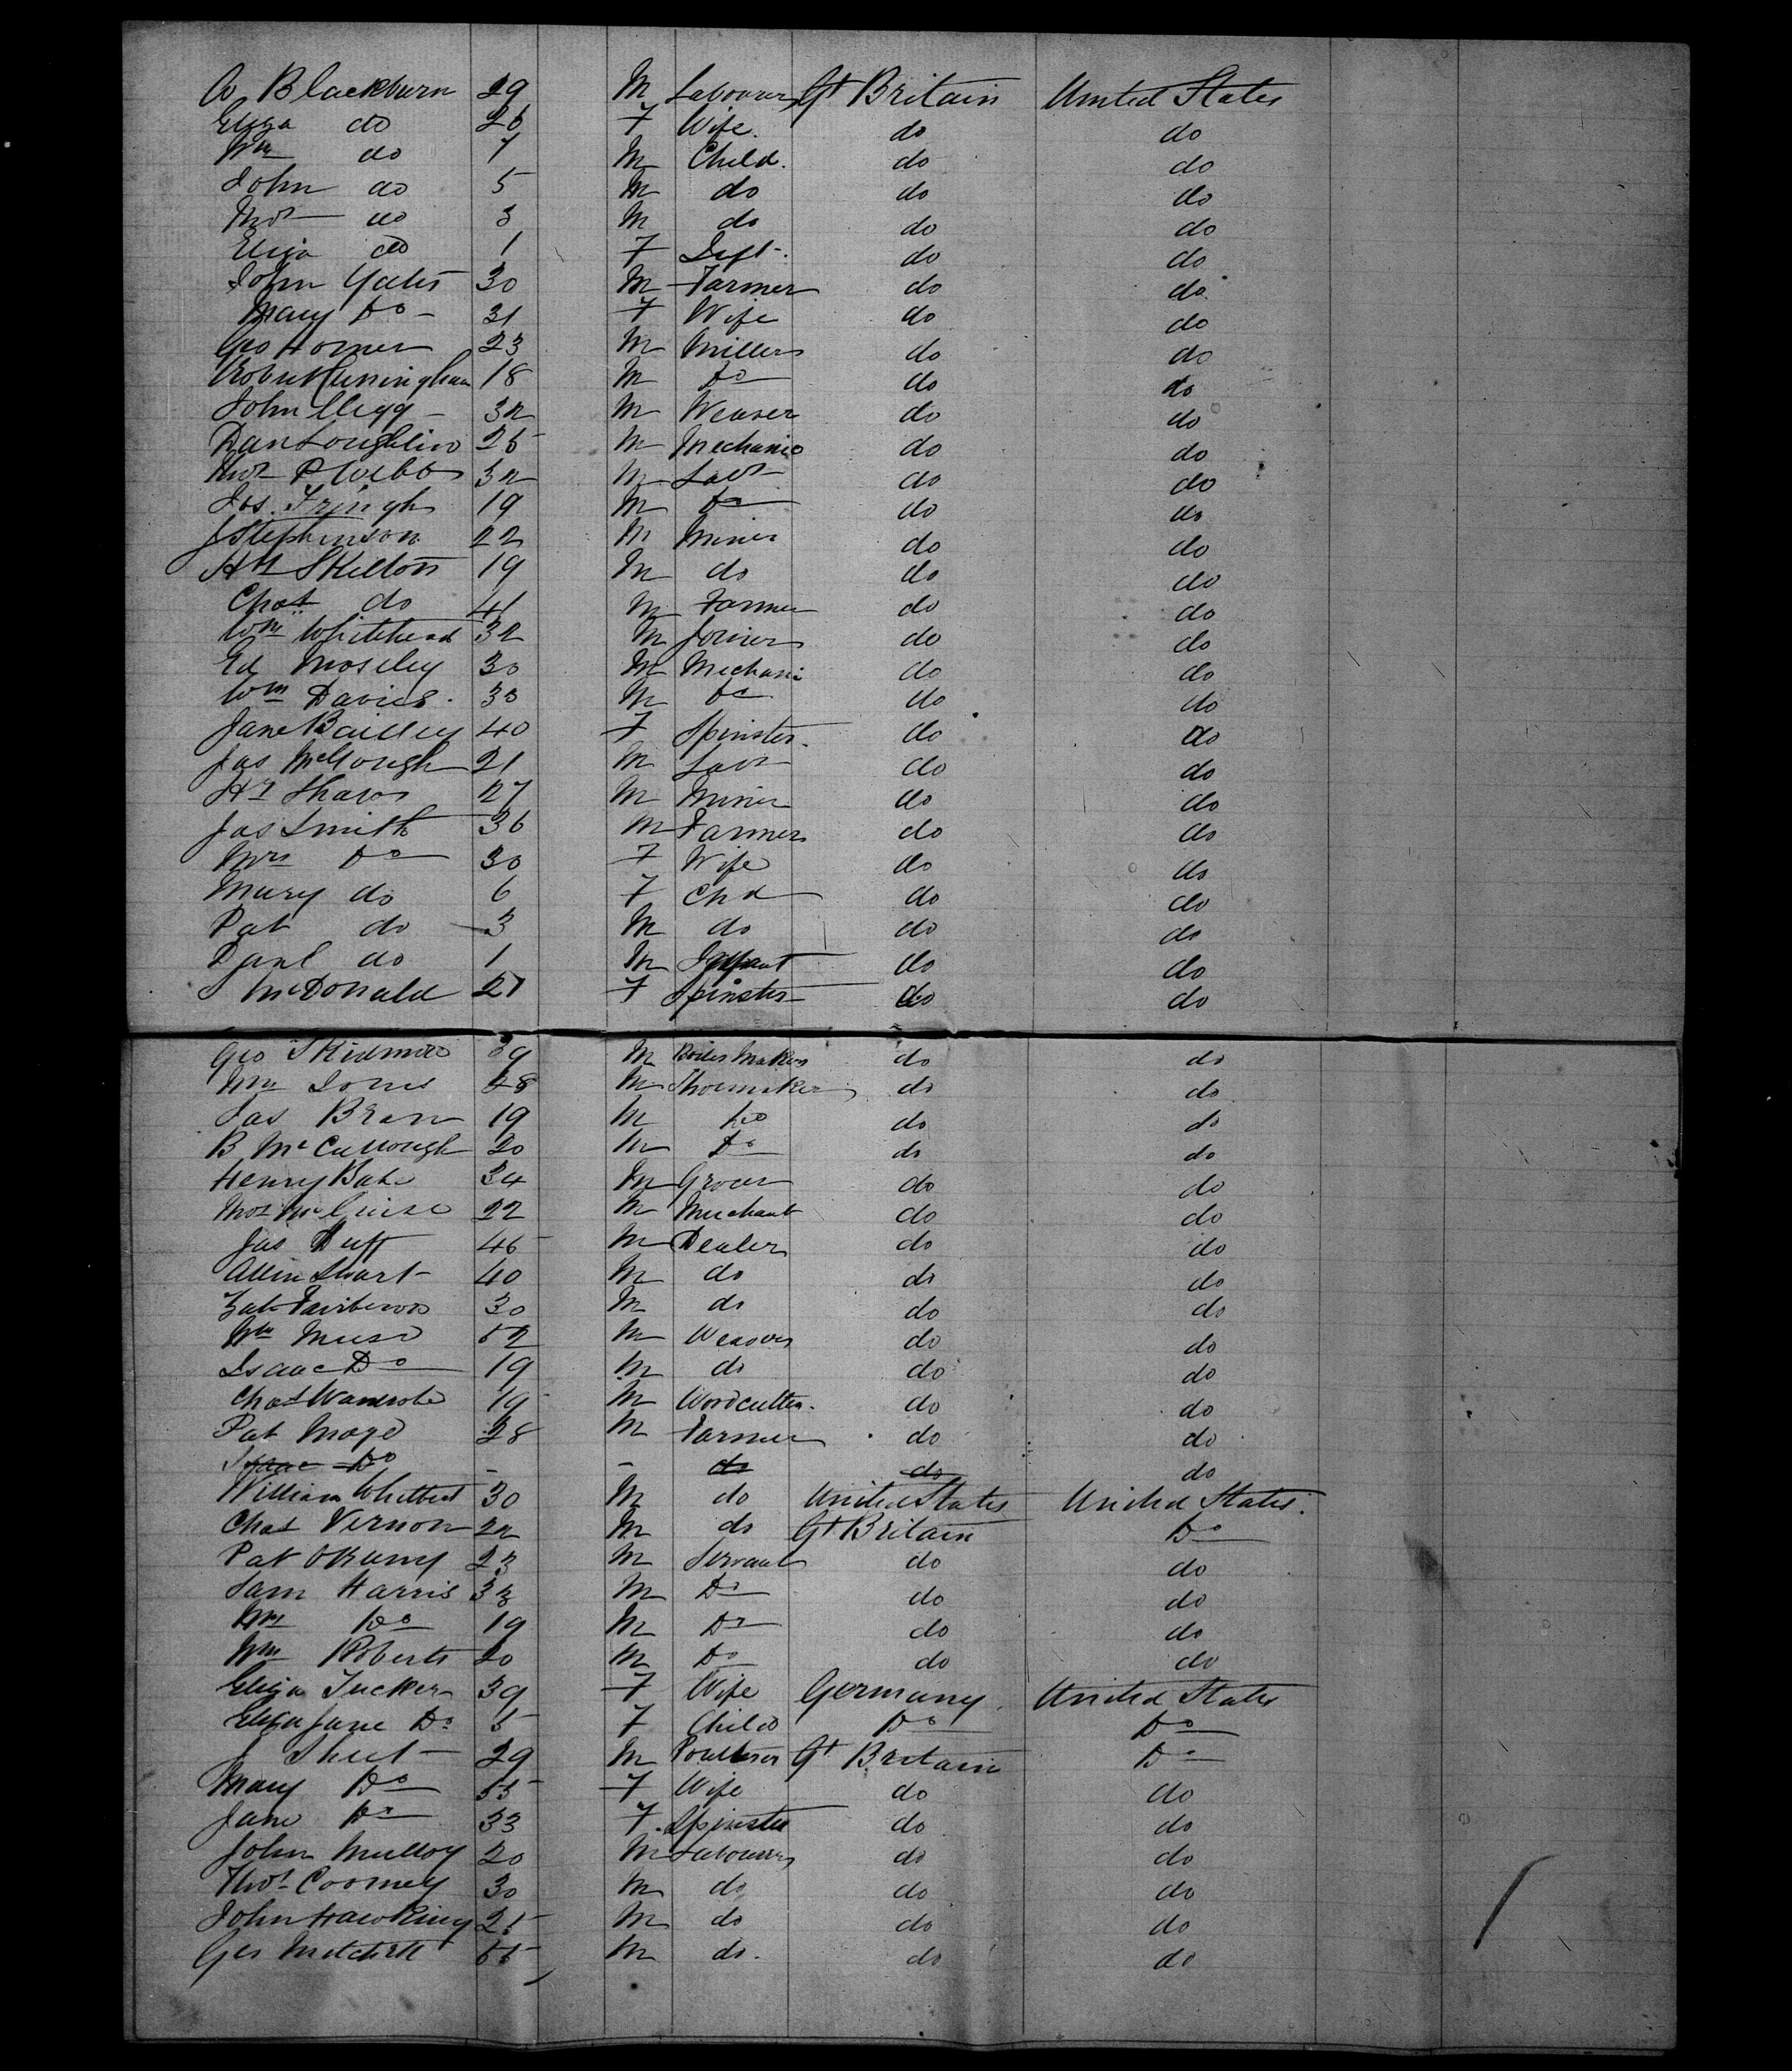 W Blackburn 29 M Labourer Gt Britain United States
Eliza do 26 F Wife. do do
Wm do 7 M Child. do do
John do 5 M do do do
Thos do 3 M do do do
Eliza do 1 F Inft. do do
John Yates 30 M Farmer do do
Mary Do 31 F Wife do do
Geo Horner 23 M Miller do do
Robt Cunningham 18 M Do do do
John Clegg 32 M Weaver do do
Dan Loughlin 25 M Mechanic do do
Thos P Webb 32 M Labr do do
Jos. 19 M Do do do
J Stephenson 22 M Miner do do
Hy Skelton 19 M do do do
Chas do 41 M Farmer do do
Wm Whitehead 32 M Joiner do do
Ed Moseley 30 M Mechanic do do
Wm Davies 30 M Do do do
Jane Bailley 40 F Spinster do do
Jas McGough 21 M Labr do do
Hy Sharp 27 M Miner do do
Jas Smith 36 M Farmer do do
Mrs Do 30 F Wife do do
Mary do 6 F Chd do do
Pat do 3 M do do do
Danl do 1 M Infant do do
McDonald 27 F Spinster do do
Geo Skidmore 39 M Boiler Maker do do
Wm Jones 48 M Shoemaker do do
Jas Bran 19 M Do do do
B McCullough 20 M Do do do
Henry Bate 34 M Grocer do do
Thos McGuise 22 M Merchant do do
Jas Duff 45 M Dealer do do
Allen Stuart 40 M do do do
30 M do do do
Wm Muse 52 M Weaver do do
Isaac Do 19 M do do do
Chas 19 M Woodcutter. do do
Pat Mage 28 M Farmer do do
Isaac Do - - do do do
William Whitbert 30 M do United States United States.
Chas Vernon 22 M do Gt Britain Do
Pat 23 M Servant do do
Sam Harris 38 M Do do do
Wm Do 19 M Do do do
Wm Roberts 20 M Do do do
Eliza Tucker 39 F Wife Germany United States
Eliza Jane Do 5 F Child Do Do
J Sheet 29 M Poulterer Gt Britain Do
Mary Do 55 F Wife do do
Jane Do 33 F Spinster do do
John Mulloy 20 M Labourer do do
Thos Coomey 30 M do do do
John Hawking 25 M do do do
Geo Mitchell 55 M do. do do